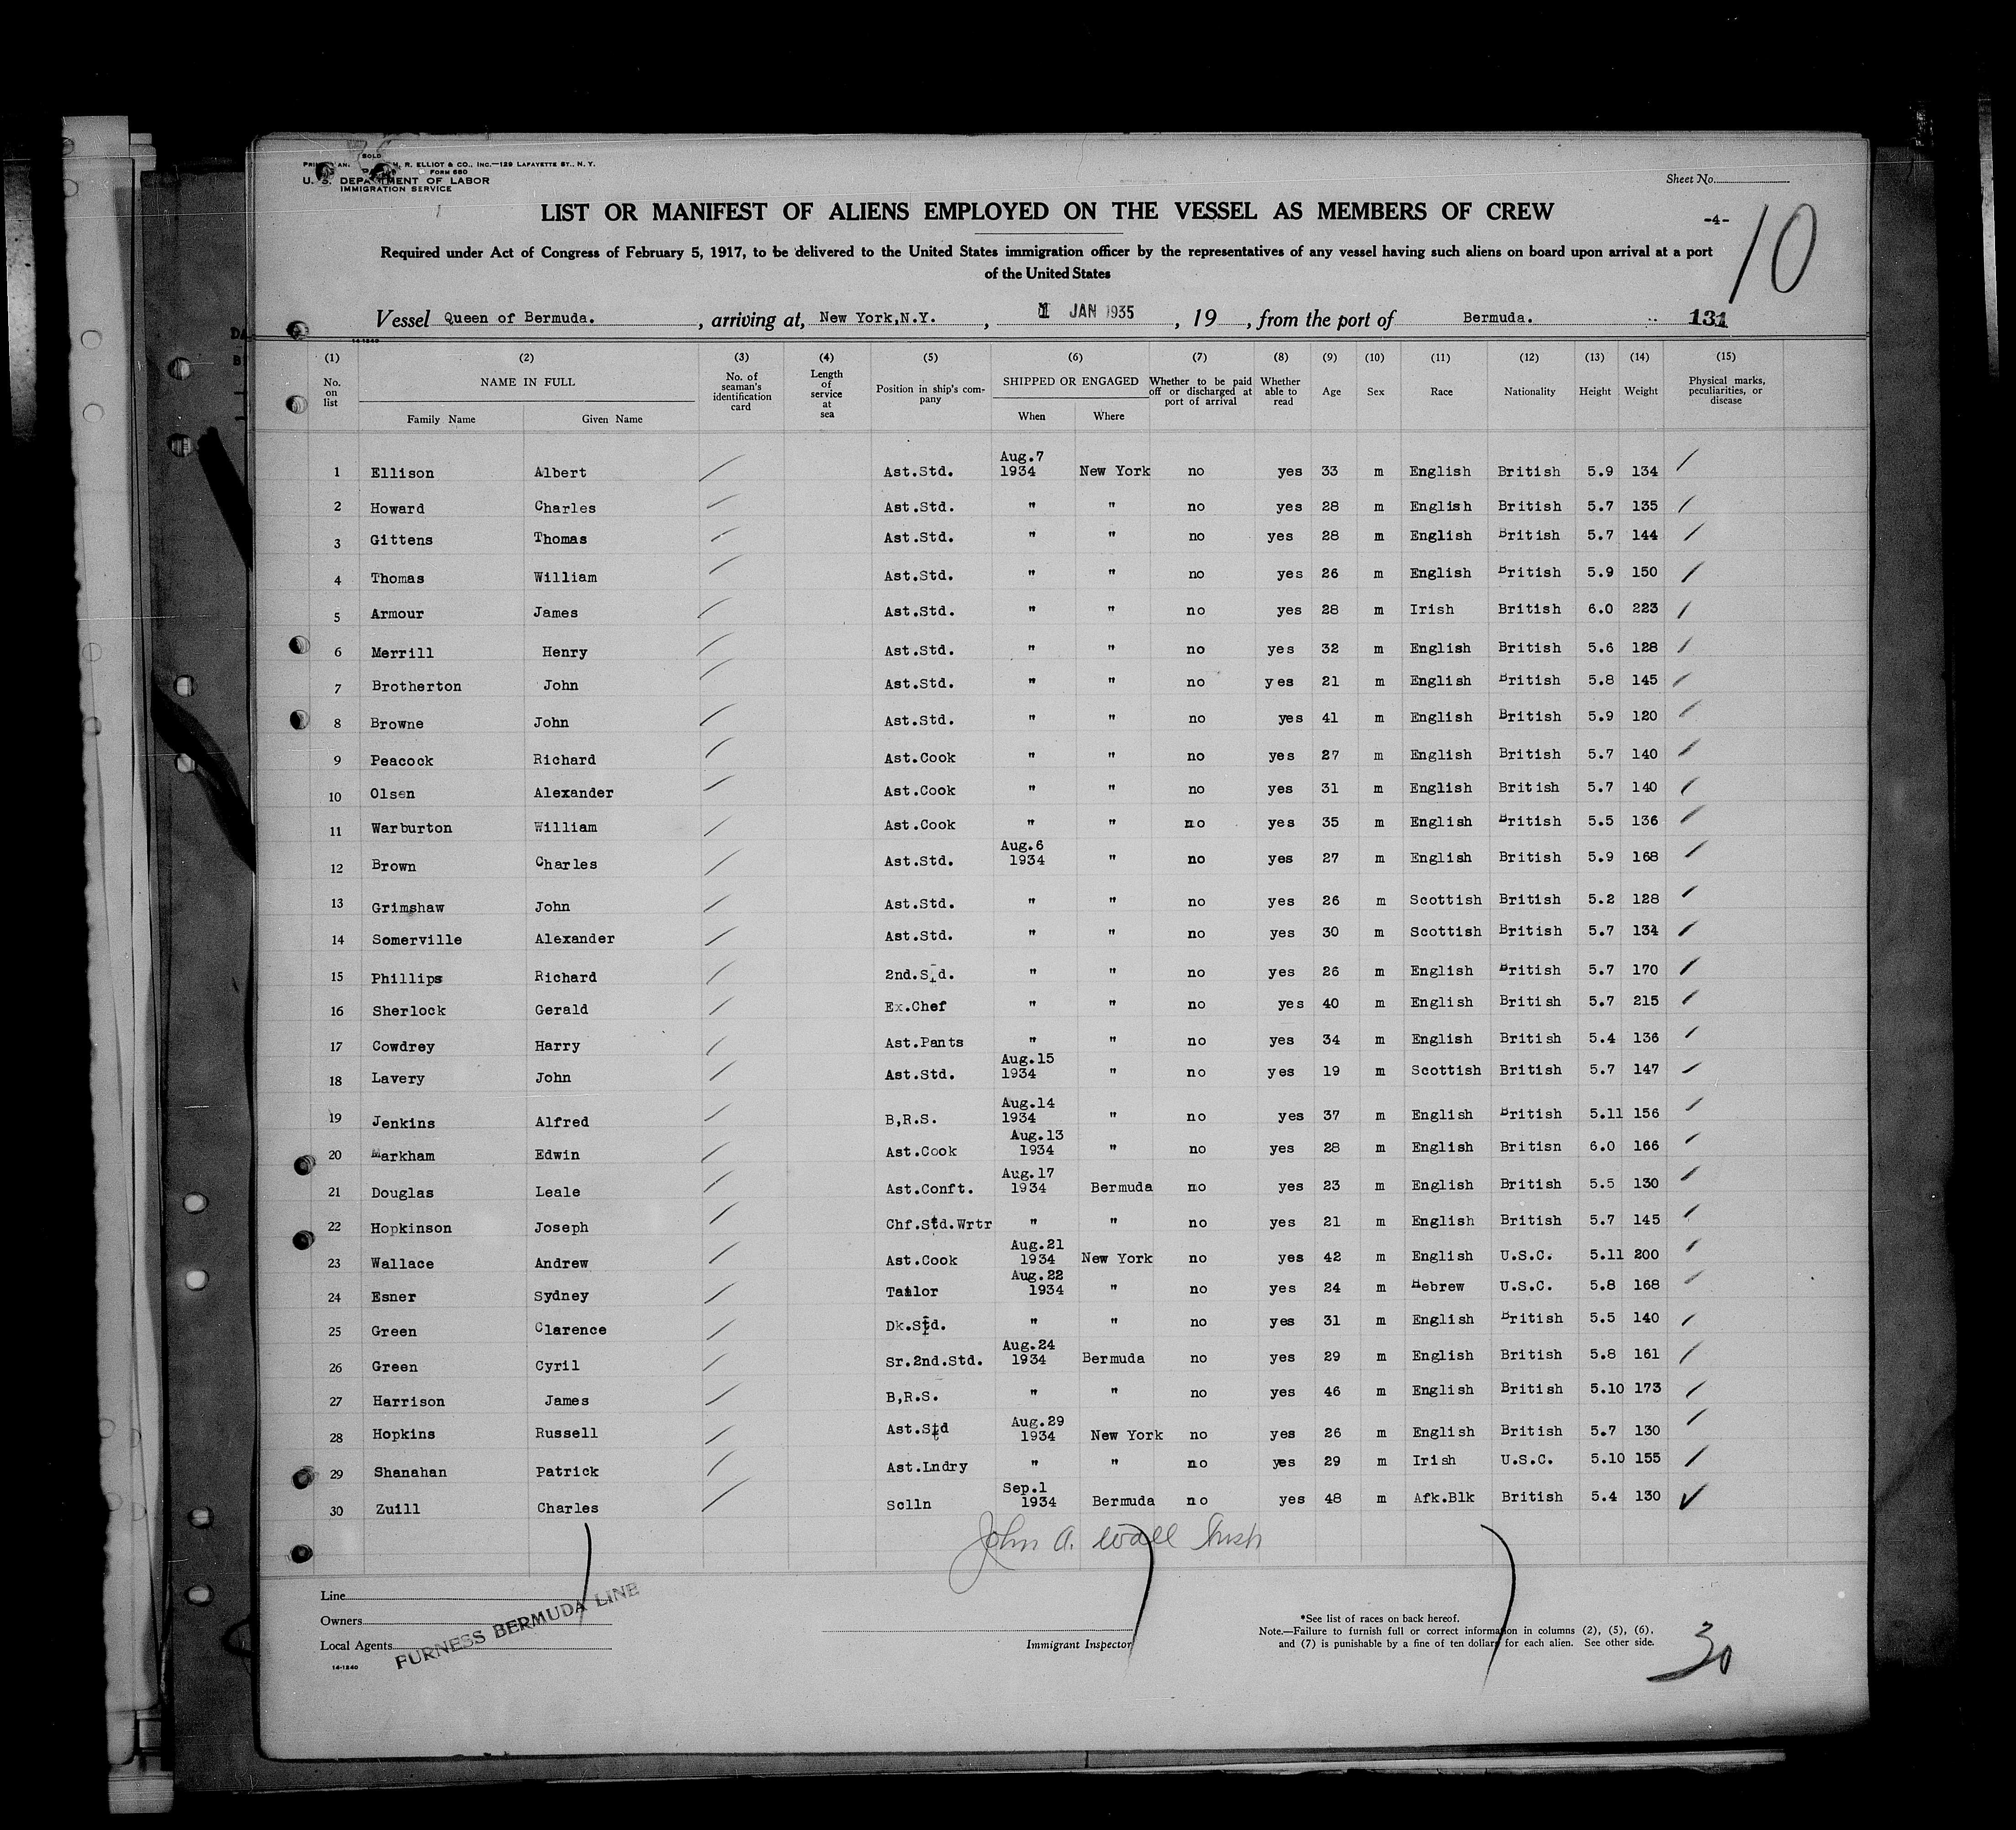 SOLD
R. ELLIOT & CO., INC.—129 LAFAYETTE ST., N. Y.
FORM 680
U. S. DEPARTMENT OF LABOR
IMMIGRATION SERVICE
Sheet No.
-4-
10
LIST OR MANIFEST OF ALIENS EMPLOYED ON THE VESSEL AS MEMBERS OF CREW
Required under Act of Congress of February 5, 1917, to be delivered to the United States immigration officer by the representatives of any vessel having such aliens on board upon arrival at a port
of the United States
Vessel Queen of Bermuda. , arriving at, New York,N.Y. , 1 JAN 1935 , 19 , from the port of Bermuda. 131
14-1240
(1) (2) (3) (4) (5) (6) (7) (8) (9) (10) (11) (12) (13) (14) (15)
No. on list NAME IN FULL Family Name Given Name No. of seaman's identification card Length of service at sea Position in ship's company SHIPPED OR ENGAGED When Where Whether to be paid off or discharged at port of arrival Whether able to read Age Sex Race Nationality Height Weight Physical marks, peculiarities, or disease
1 Ellison Albert Ast.Std. Aug.7 1934 New York no yes 33 m English British 5.9 134
2 Howard Charles Ast.Std. " " no yes 28 m English British 5.7 135
3 Gittens Thomas Ast.Std. " " no yes 28 m English British 5.7 144
4 Thomas William Ast.Std. " " no yes 26 m English British 5.9 150
5 Armour James Ast.Std. " " no yes 28 m Irish British 6.0 223
6 Merrill Henry Ast.Std. " " no yes 32 m English British 5.6 128
7 Brotherton John Ast.Std. " " no yes 21 m English British 5.8 145
8 Browne John Ast.Std. " " no yes 41 m English British 5.9 120
9 Peacock Richard Ast.Cook " " no yes 27 m English British 5.7 140
10 Olsen Alexander Ast.Cook " " no yes 31 m English British 5.7 140
11 Warburton William Ast.Cook " " no yes 35 m English British 5.5 136
12 Brown Charles Ast.Std. Aug.6 1934 " no yes 27 m English British 5.9 168
13 Grimshaw John Ast.Std. " " no yes 26 m Scottish British 5.2 128
14 Somerville Alexander Ast.Std. " " no yes 30 m Scottish British 5.7 134
15 Phillips Richard 2nd.Std. " " no yes 26 m English British 5.7 170
16 Sherlock Gerald Ex.Chef " " no yes 40 m English British 5.7 215
17 Cowdrey Harry Ast.Pants " " no yes 34 m English British 5.4 136
18 Lavery John Ast.Std. Aug.15 1934 " no yes 19 m Scottish British 5.7 147
19 Jenkins Alfred B,R.S. Aug.14 1934 " no yes 37 m English British 5.11 156
20 Markham Edwin Ast.Cook Aug.13 1934 " no yes 28 m English Britisn 6.0 166
21 Douglas Leale Ast.Conft. Aug.17 1934 Bermuda no yes 23 m English British 5.5 130
22 Hopkinson Joseph Chf.Std.Wrtr " " no yes 21 m English British 5.7 145
23 Wallace Andrew Ast.Cook Aug.21 1934 New York no yes 42 m English U.S.C. 5.11 200
24 Esner Sydney Tailor Aug.22 1934 " no yes 24 m Hebrew U.S.C. 5.8 168
25 Green Clarence Dk.Std. " " no yes 31 m English British 5.5 140
26 Green Cyril Sr.2nd.Std. Aug.24 1934 Bermuda no yes 29 m English British 5.8 161
27 Harrison James B,R.S. " " no yes 46 m English British 5.10 173
28 Hopkins Russell Ast.Std Aug.29 1934 New York no yes 26 m English British 5.7 130
29 Shanahan Patrick Ast.Lndry " " no yes 29 m Irish U.S.C. 5.10 155
30 Zuill Charles Sclln Sep.1 1934 Bermuda no yes 48 m Afk.Blk British 5.4 130
John A. Wall
Line
Owners
Local Agents
FURNESS BERMUDA LINE
14-1240
Immigrant Inspector
*See list of races on back hereof.
Note.—Failure to furnish full or correct information in columns (2), (5), (6),
and (7) is punishable by a fine of ten dollars for each alien. See other side.
30